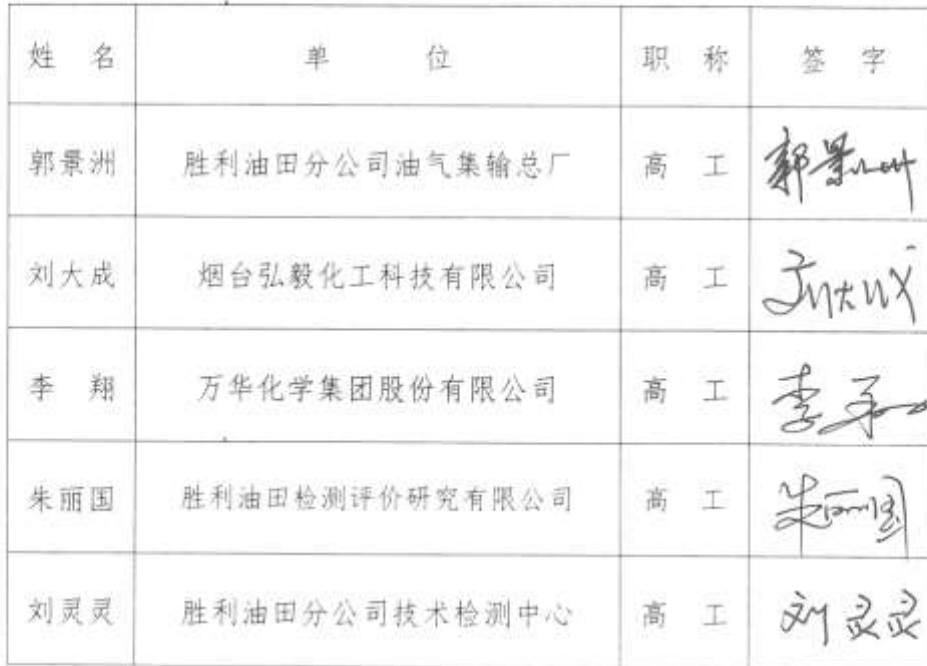 姓 名 单 位 职 称 签 字
郭景洲 胜利油田分公司油气集输总厂 高 工 郭景洲
刘大成 烟台弘毅化工科技有限公司 高 工 刘大成
李 翔 万华化学集团股份有限公司 高 工 李翔
朱丽国 胜利油田检测评价研究有限公司 高 工 朱丽国
刘灵灵 胜利油田分公司技术检测中心 高 工 刘灵灵